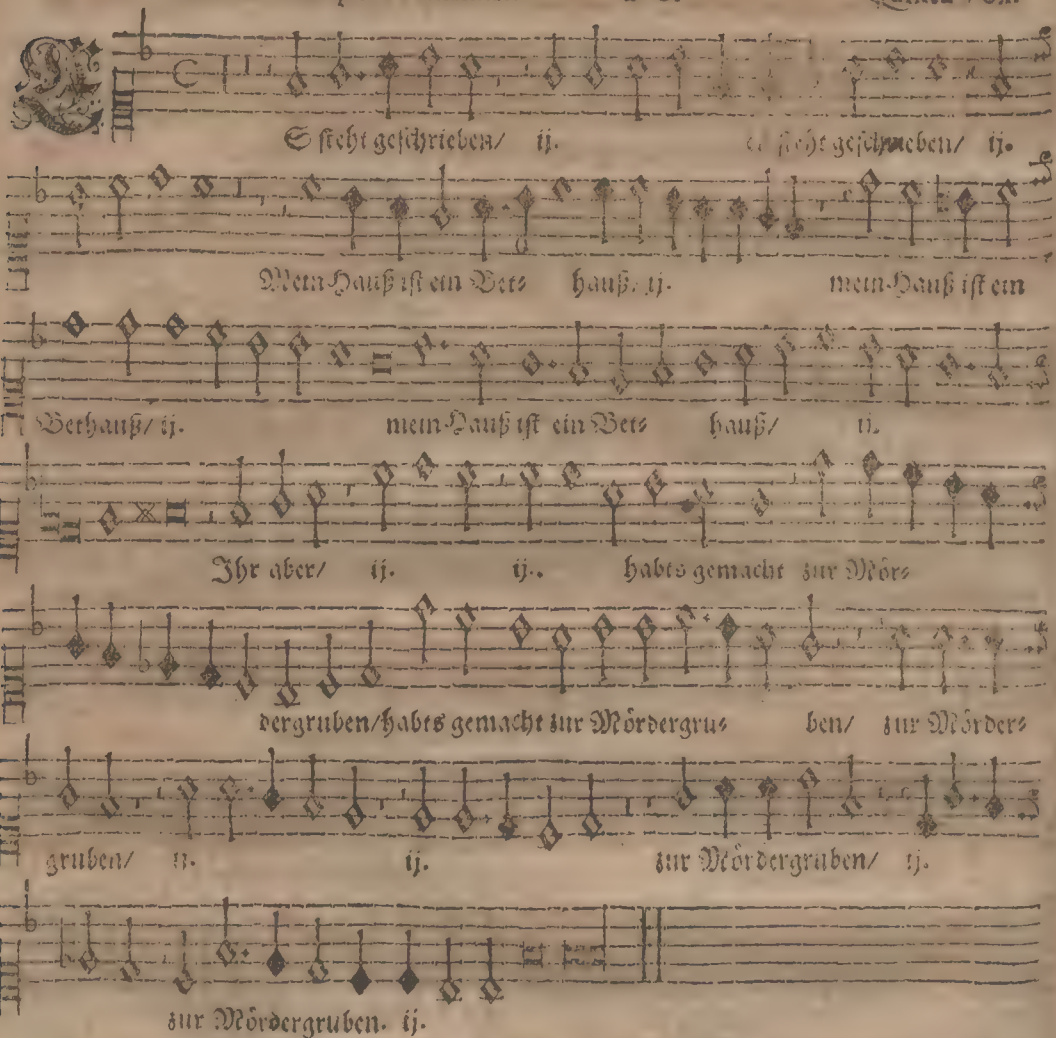 ES steht geschrieben/ ij. es steht geschrieben/ ij.
Mein Hauß ist ein Bet⸗ hauß/ ij. mein Hauß ist ein
Bethauß/ ij. mein Hauß ist ein Bet⸗ hauß/ ij.
Ihr aber/ ij. ij. habts gemacht zur Mör⸗
dergruben/habts gemacht zur Mördergru⸗ ben/ zur Mörder⸗
gruben/ ij. ij. zur Mördergruben/ ij.
zur Mördergruben. ij.